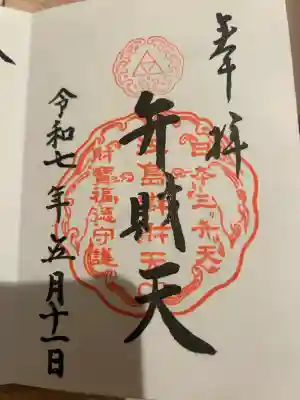 奉拝
日本三弁天
弁財天
財寶福徳守護
令和七年五月十一日